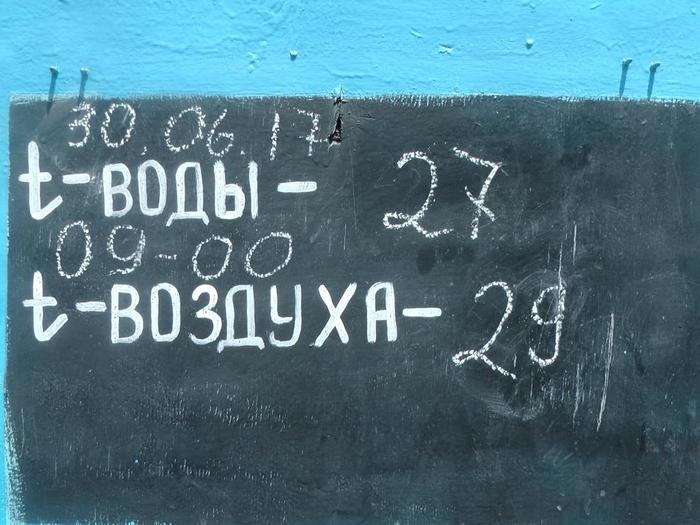 30.06.17
t-ВОДЫ- 27
09-00
t-ВОЗДУХА- 29